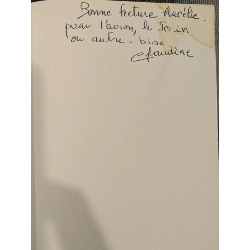 Bonne lecture Aurélie.
pour l'avion, le train
ou autre. bise
Claudine